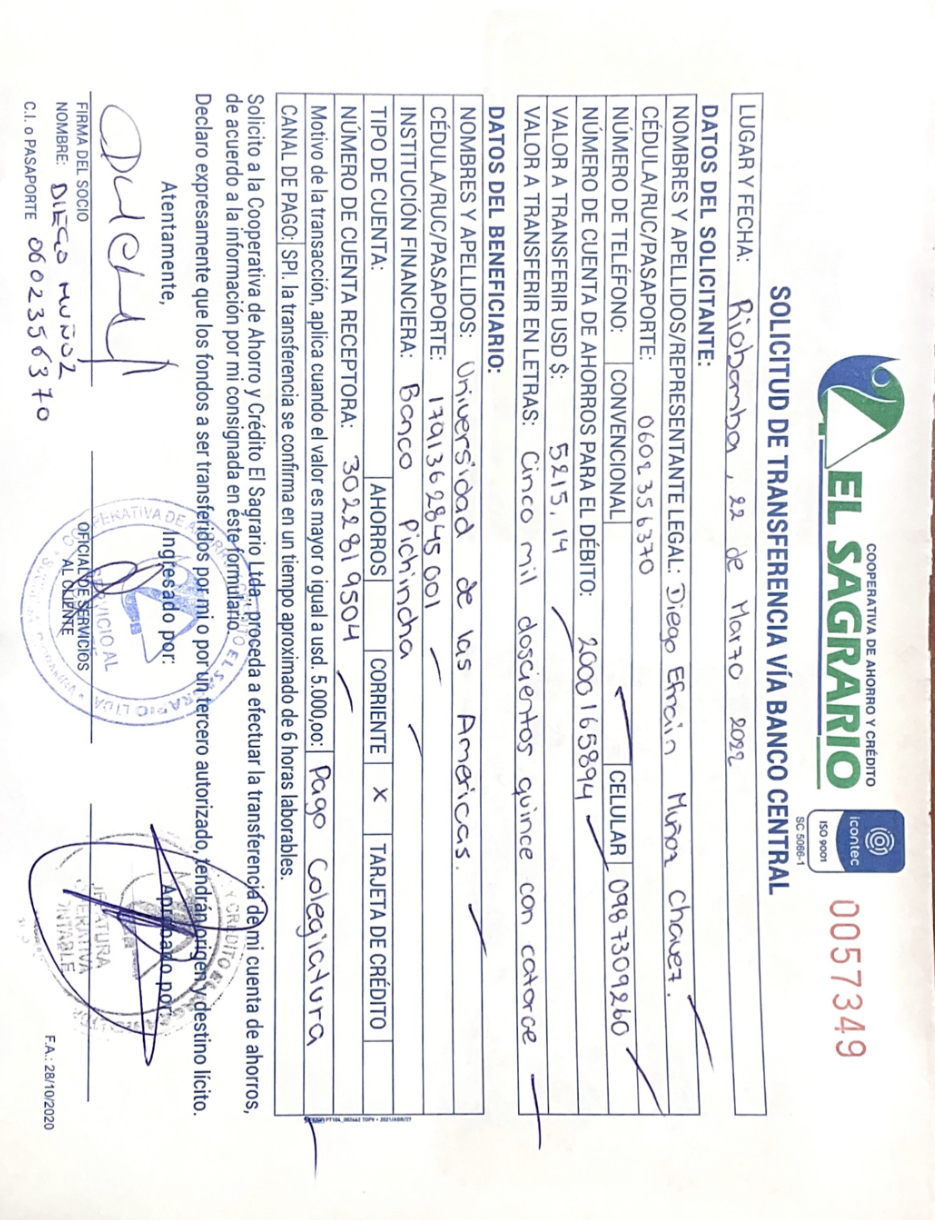 COOPERATIVA DE AHORRO Y CRÉDITO
EL SAGRARIO
icontec
ISO 9001
SC 5066-1
0057349
SOLICITUD DE TRANSFERENCIA VÍA BANCO CENTRAL
LUGAR Y FECHA: Riobamba, 22 de Marzo 2022
DATOS DEL SOLICITANTE:
NOMBRES Y APELLIDOS/REPRESENTANTE LEGAL: Diego Efrain Muñoz Chavez.
CÉDULA/RUC/PASAPORTE: 0602356370
NÚMERO DE TELÉFONO: CONVENCIONAL CELULAR 0987309260
NÚMERO DE CUENTA DE AHORROS PARA EL DÉBITO: 2000165894
VALOR A TRANSFERIR USD $: 5215,14
VALOR A TRANSFERIR EN LETRAS: Cinco mil doscientos quince con catorce
DATOS DEL BENEFICIARIO:
NOMBRES Y APELLIDOS: Universidad de las Americas.
CÉDULA/RUC/PASAPORTE: 1791362845001
INSTITUCIÓN FINANCIERA: Banco Pichincha
TIPO DE CUENTA: AHORROS CORRIENTE X TARJETA DE CRÉDITO
NÚMERO DE CUENTA RECEPTORA: 3022819504
Motivo de la transacción, aplica cuando el valor es mayor o igual a usd. 5.000,00: Pago Colegiatura
CANAL DE PAGO: SPI. la transferencia se confirma en un tiempo aproximado de 6 horas laborables.
Solicito a la Cooperativa de Ahorro y Crédito El Sagrario Ltda., proceda a efectuar la transferencia de mi cuenta de ahorros,
de acuerdo a la información por mi consignada en este formulario
Declaro expresamente que los fondos a ser transferidos por mi o por un tercero autorizado, tendrán origen y destino lícito.
Atentamente, Ingresado por: Aprobado por:
SERVICIO AL
JEFATURA
OPERATIVA
CONTABLE
FIRMA DEL SOCIO OFICIAL DE SERVICIOS
AL CLIENTE
NOMBRE: DIEGO MUÑOZ
C.I. o PASAPORTE 0602356370
F.A.: 28/10/2020